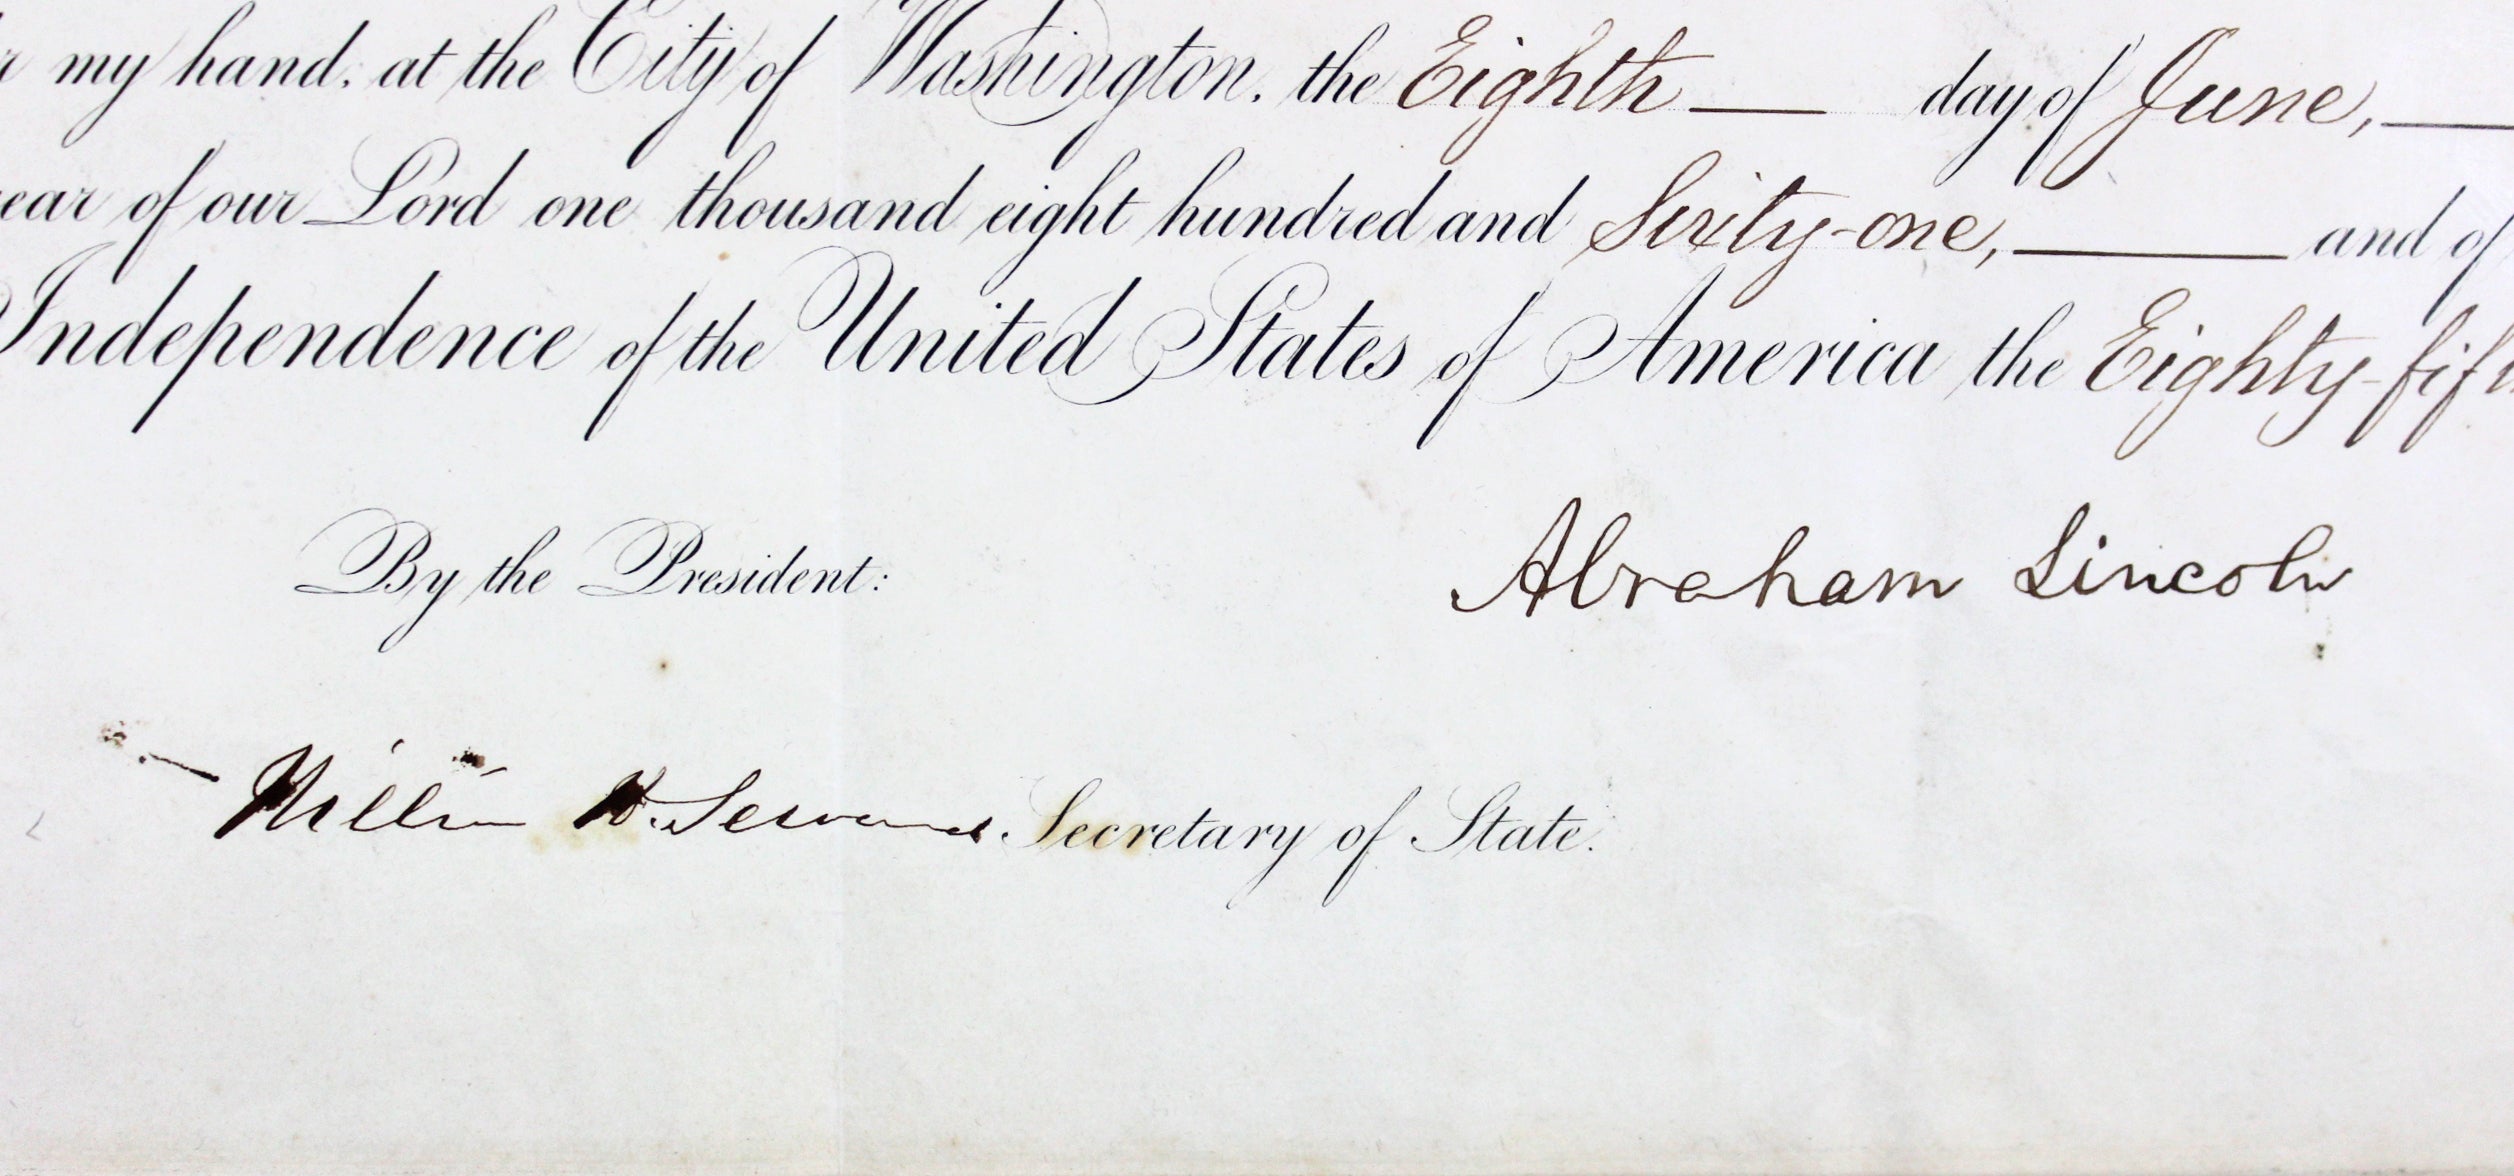 my hand, at the City of Washington, the Eighth — day of June, —
ear of our Lord one thousand eight hundred and Sixty-one, — and of
Independence of the United States of America the Eighty-fif
By the President:
Abraham Lincoln
William H. Seward Secretary of State.